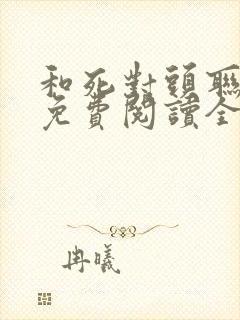 和死對頭聯
免費閱讀全
冉曦